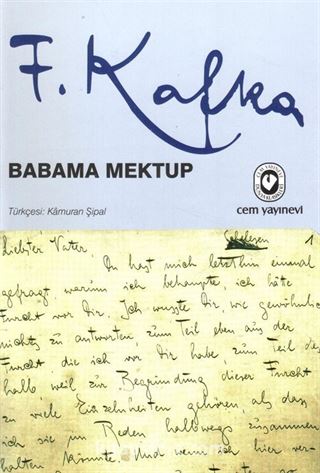 F. Kafka
BABAMA MEKTUP
Türkçesi: Kâmuran Şipal
cem yayınevi
Schelesen
1
Liebster Vater,
Du hast mich letzthin einmal
gefragt, warum ich behaupte, ich hätte
Furcht vor Dir. Ich wusste Dir, wie gewöhnlich,
nichts zu antworten, zum Teil eben aus der
Furcht die ich vor Dir habe, zum Teil des
halb weil zur Begründung dieser Furcht
zu viele Einzelnheiten gehören, als dass
ich sie im Reden halbwegs zusammen
halten könnte. Und wenn ich hier ver-